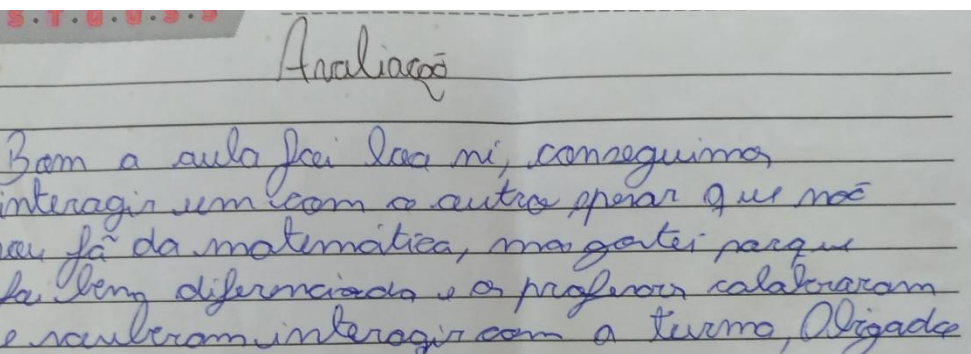 S.T.Q.Q.S.S
Avaliação
Bom a aula foi boa mi, conseguimos
interagir um com o outro apesar que não
sou fã da matemática, mas gostei porque
foi bem diferenciada e os professores colaboraram
e souberam interagir com a turma, Obigada